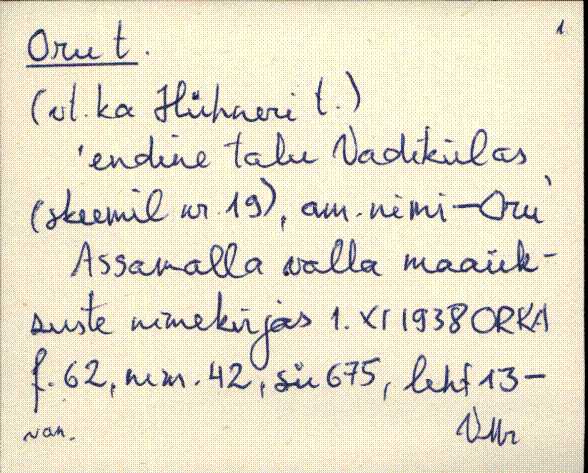 1
Oru t.
(vt. ka Hühneri t.)
'endine talu Vadikülas
(skeemil nr. 19), am. nimi—Oru'
Assamalla valla maaük-
suste nimekirjas 1. XI 1938 ORKA
f. 62, nim. 42, sü 675, leht 13—
VMr